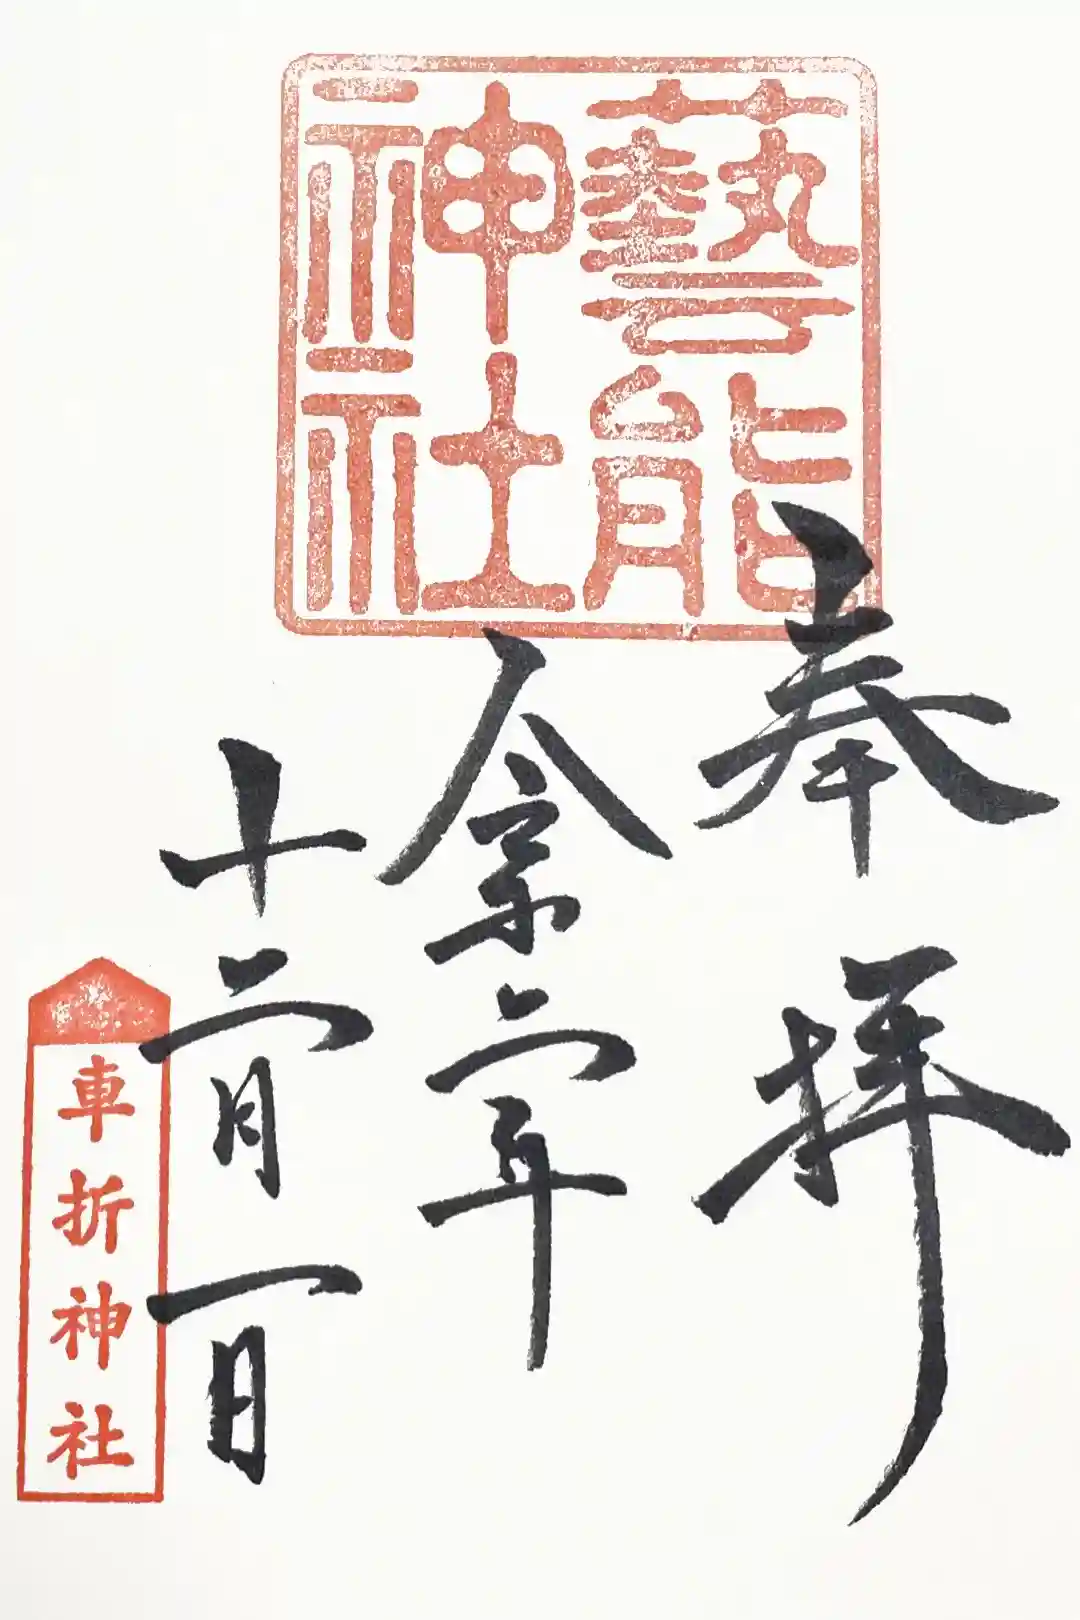 藝能
神社
奉拝
令和二年
十二月一日
車折神社